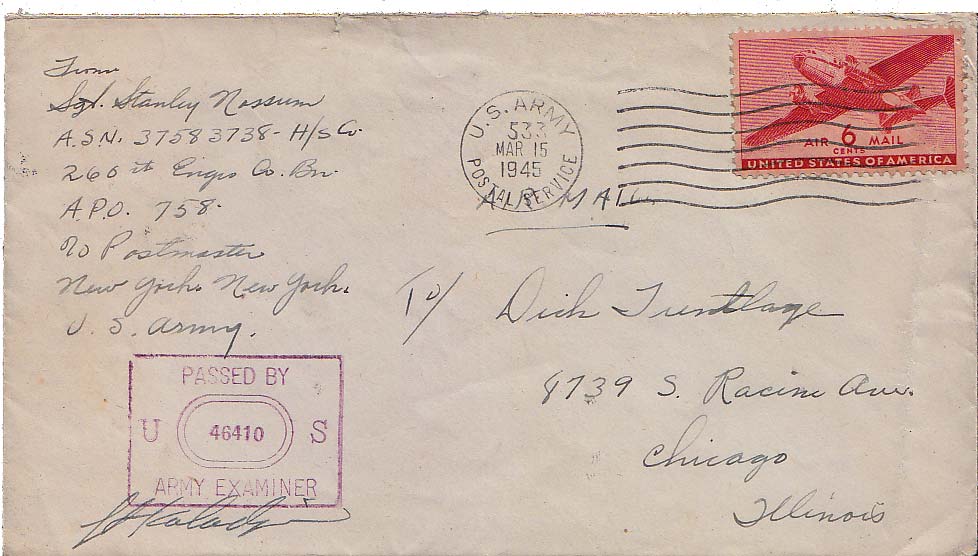 From
Sgt. Stanley Nossum
A.S.N. 37583738- H/S Co.
260th Engrs Co. Bn.
A.P.O. 758.
c/o Postmaster
New York. New York.
U. S. Army.
U.S. ARMY
533
MAR 15
1945
POSTAL SERVICE
AIR MAIL
AIR 6 MAIL
CENTS
UNITED STATES OF AMERICA
To/ Dick
8739 S. Racine Ave.
Chicago
Illinois
PASSED BY
U 46410 S
ARMY EXAMINER